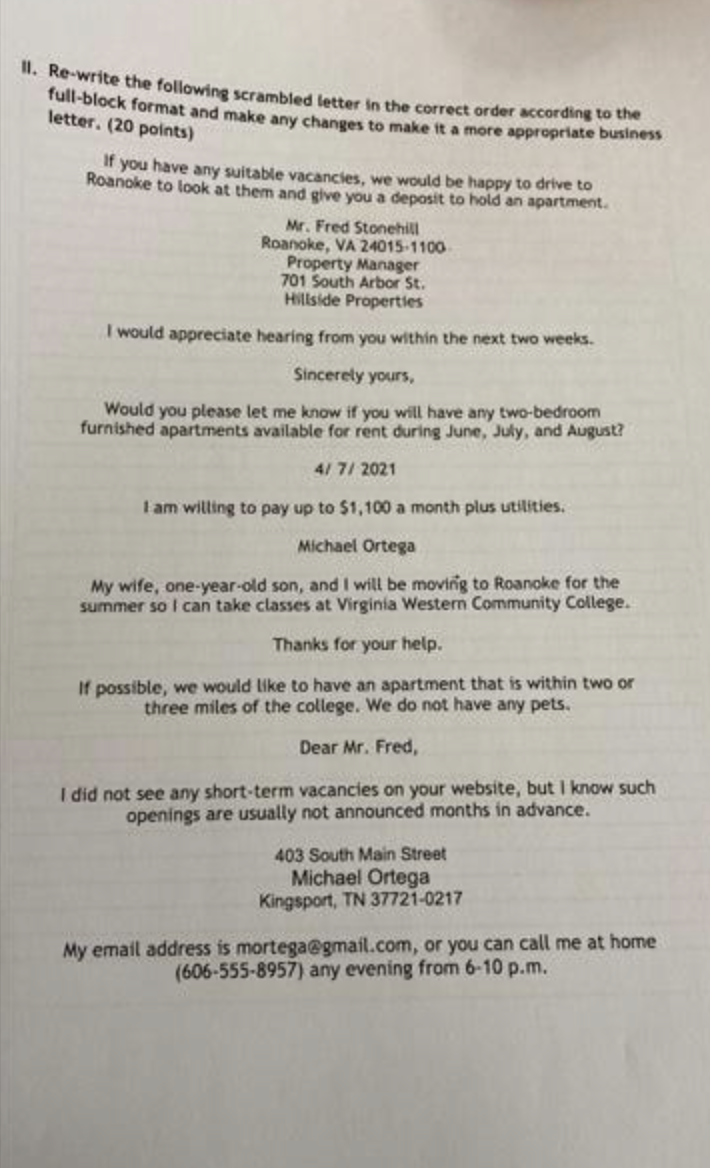 II. Re-write the following scrambled letter in the correct order according to the
full-block format and make any changes to make it a more appropriate business
letter. (20 points)
If you have any suitable vacancies, we would be happy to drive to
Roanoke to look at them and give you a deposit to hold an apartment.
Mr. Fred Stonehill
Roanoke, VA 24015-1100
Property Manager
701 South Arbor St.
Hillside Properties
I would appreciate hearing from you within the next two weeks.
Sincerely yours,
Would you please let me know if you will have any two-bedroom
furnished apartments available for rent during June, July, and August?
4/ 7/ 2021
I am willing to pay up to $1,100 a month plus utilities.
Michael Ortega
My wife, one-year-old son, and I will be moving to Roanoke for the
summer so I can take classes at Virginia Western Community College.
Thanks for your help.
If possible, we would like to have an apartment that is within two or
three miles of the college. We do not have any pets.
Dear Mr. Fred,
I did not see any short-term vacancies on your website, but I know such
openings are usually not announced months in advance.
403 South Main Street
Michael Ortega
Kingsport, TN 37721-0217
My email address is mortega@gmail.com, or you can call me at home
(606-555-8957) any evening from 6-10 p.m.